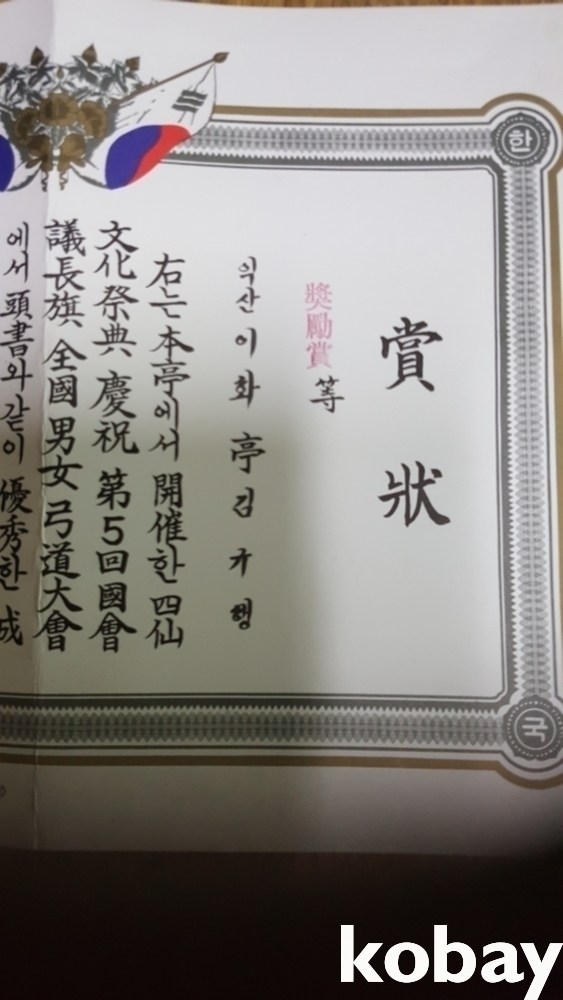 賞狀
獎勵賞 等
익산 이화亭 김규행
右는 本亭에서 開催한 四仙
文化祭典 慶祝 第5回國會
議長旗 全國 男女 弓道大會
에서 頭書와 같이 優秀한 成
한
국
kobay